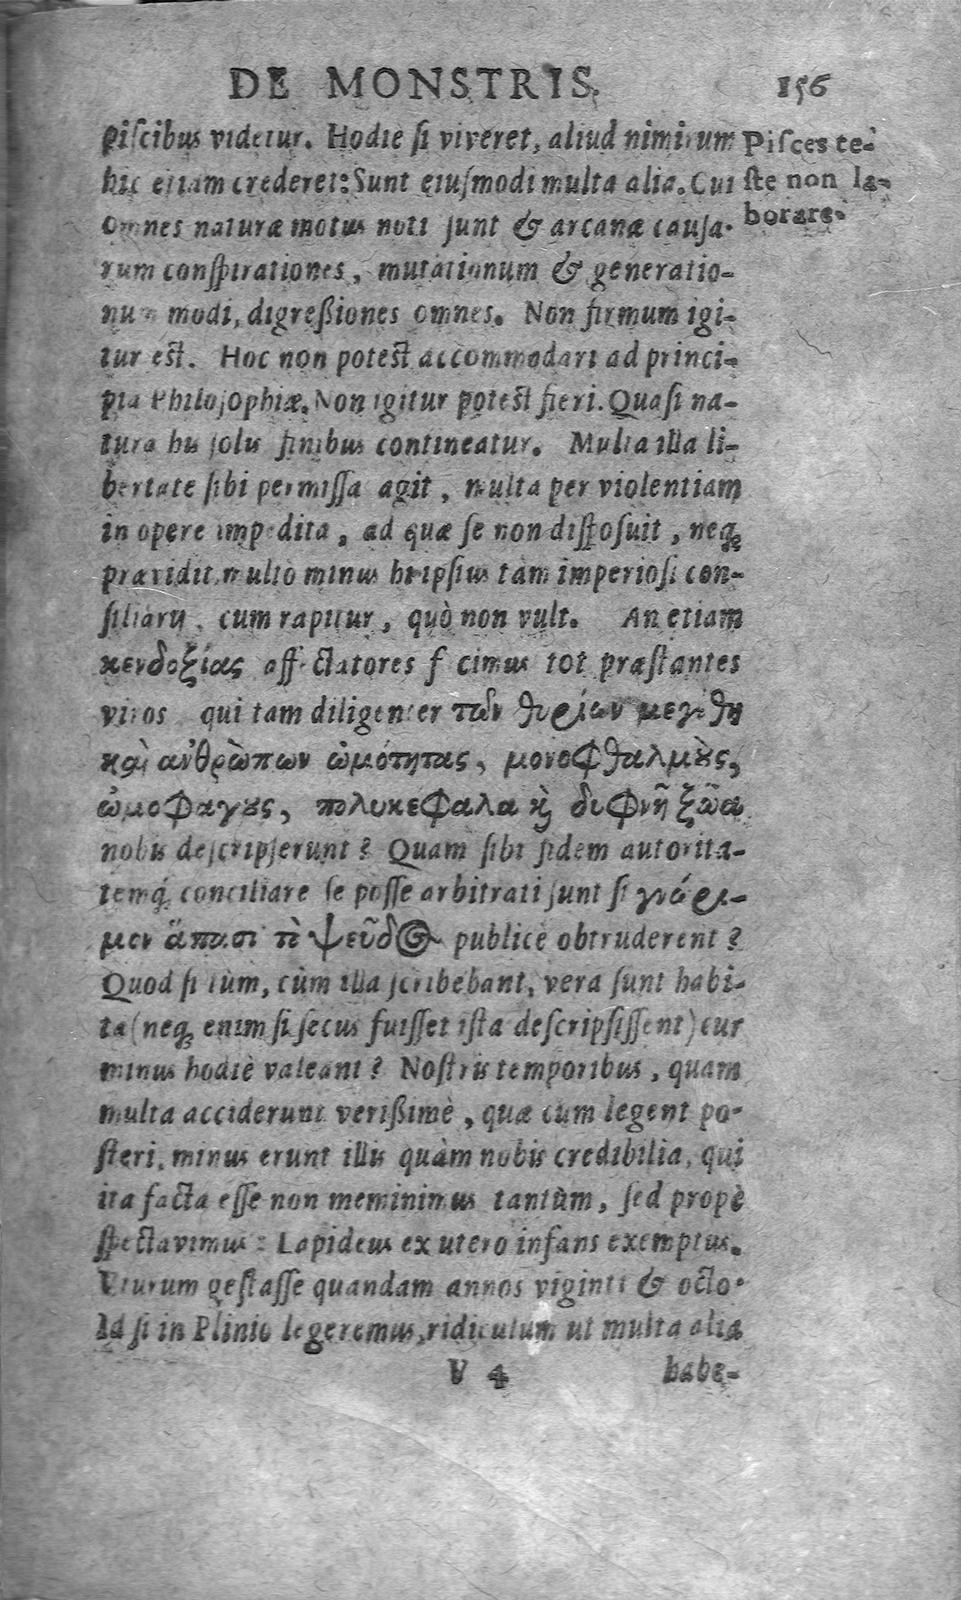 DE MONSTRIS. 156
piſcibus videtur. Hodie ſi viveret, aliud nimirum
hic etiam crederet: Sunt ejuſmodi multa alia. Cui
omnes naturæ motus noti ſunt & arcanæ cauſa-
rum conſpirationes, mutationum & generatio-
num modi, digreßiones omnes. Non firmum igi-
tur eſt. Hoc non poteſt accommodari ad princi-
pia Philoſophiæ. Non igitur poteſt fieri. Quaſi na-
tura his ſolis finibus contineatur. Multa illa li-
bertate ſibi permiſſa agit, multa per violentiam
in opere impedita, ad quæ ſe non diſpoſuit, neq;
prævidit, multo minus hujus tàm imperioſi con-
ſiliarii, cum rapitur, quò non vult. An etiam
κενδοξίας affectatores facimus tot præſtantes
viros qui tam diligenter τῶν θυρίων μεγέθη
καὶ ἀνθρὼπων ὠμότητας, μονοφθαλμȣ̀ς,
ὠμοφαγȣς, πολυκεφαλα κὶ διφυῆ ξῶα
nobis deſcripſerunt? Quam ſibi fidem autorita-
temq́; conciliare ſe poſſe arbitrati ſunt ſi γνώρι-
μον ἅπασι τὸ ψεῦδος publicè obtruderent?
Quod ſi tùm, cùm illa ſcribebant, vera ſunt habi-
ta (neq; enim ſi ſecus fuiſſet iſta deſcripſiſſent) cur
minus hodiè valeant? Noſtris temporibus, quam
multa acciderunt verißimè, quæ cùm legent po-
ſteri, minus erunt illis quàm nobis credibilia, qui
ita facta eſſe non meminimus tantùm, ſed propè
ſpectavimus: Lapideus ex utero infans exemptus.
Uturum geſtaſſe quandam annos viginti & octo.
Id ſi in Plinio legeremus, ridiculum ut multa alia
V 4 habe-
Piſces te-
ſte non la-
borare.